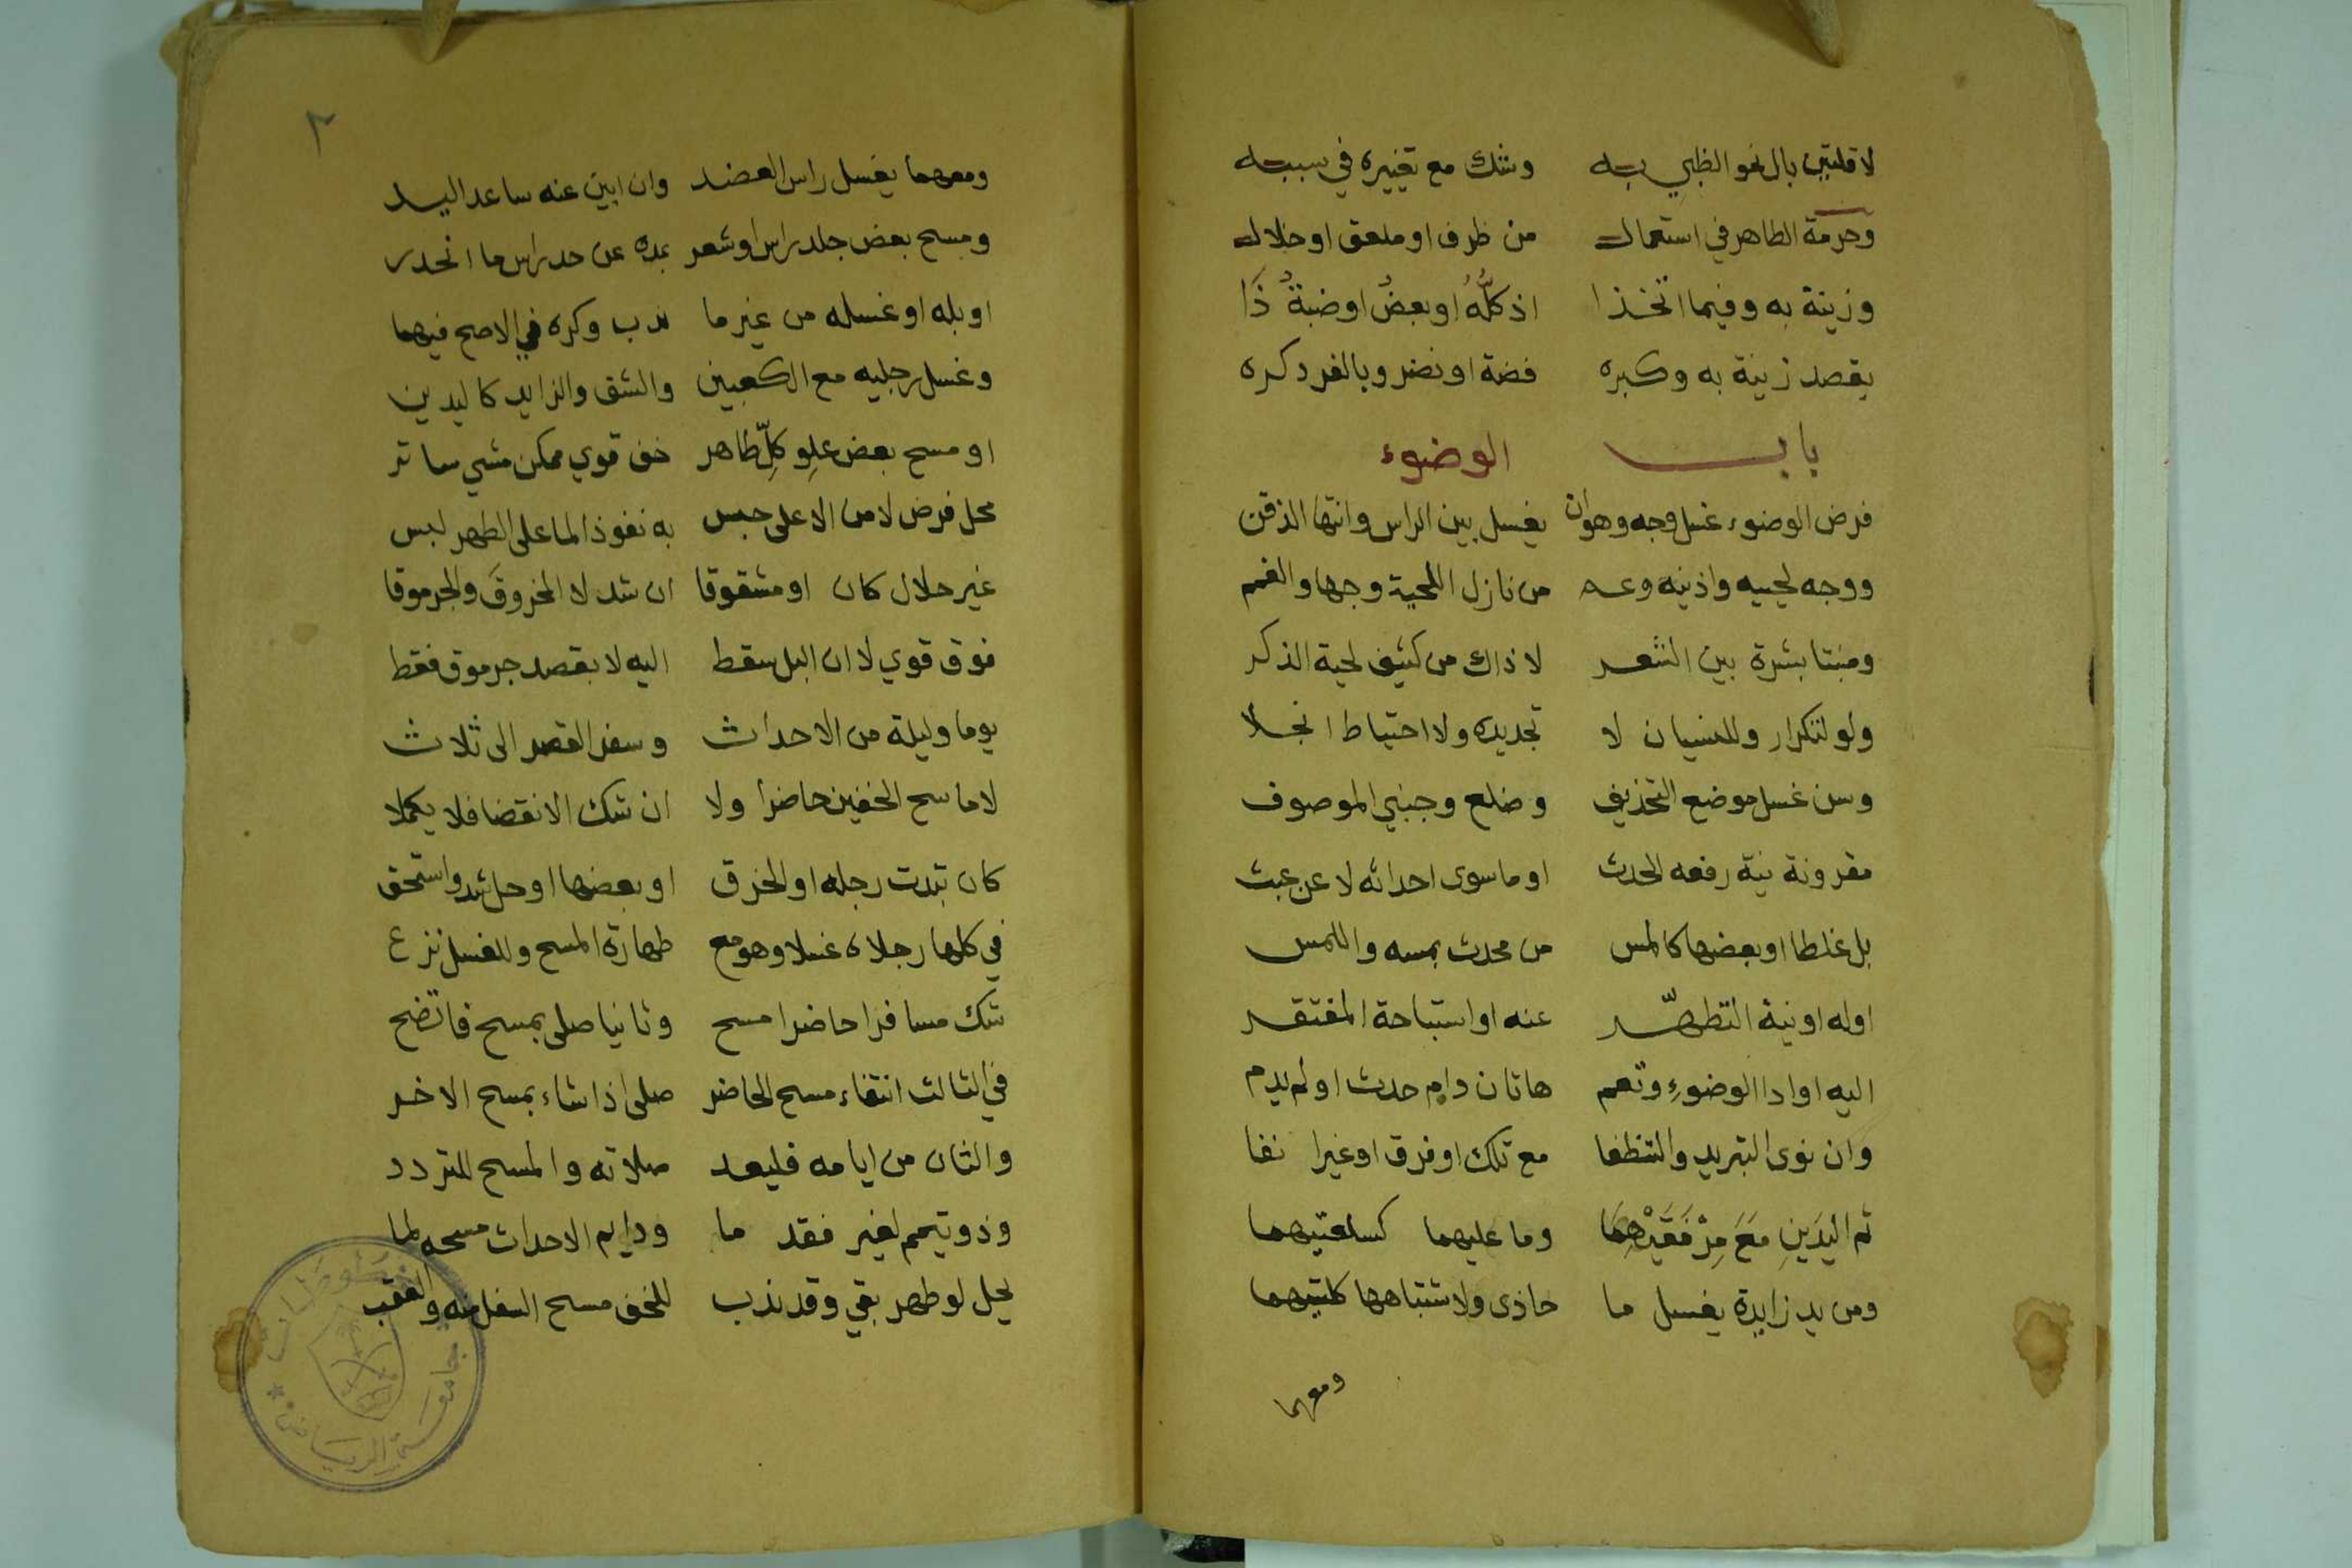 لا قلتين بال نحو الظبي به وشك مع تغييره في سببه
وحرمة الطاهر في استعماله من ظرف او ملعق او خلاله
وزينة به وفيما اتخذا اذ كلُّهُ او بعضُ او ضبةُ ذَا
يقصد زينة به وكبره فضة او نضر وبالفرد كره
باب الوضوء
فرض الوضوء غسل وجه وهو ان يغسل بين الراس وانتها الذقن
ووجه لحييه واذنيه وعم من نازل اللحية وجها والغم
ومنبتا بشرة بين الشعر لا ذاك من كثيف لحية الذكر
ولو لتكرار وللنسيان لا تجديده ولا احتياط انجلا
وسن غسل موضع التحذيف وضلع وجنبي الموصوف
مقرونة نية رفعه الحدث او ما سوى احداثه لا عن عبث
بل غلطا او بعضها كالمس من محدث بمسه واللمس
اوله او نية التطهّر عنه او استباحة المفتقر
اليه او ادا الوضوءِ وتعم هاتان دايم حدث او لم يدم
وان نوى التبريد والتنظفا مع تلك او فرق او غيرا نفا
ثم اليَدَينِ مَعَ مِرْفَقَيْهِمَا وما عليهما كسلعتيهما
ومن يد زايدة يغسل ما حاذى ولاشتباهها كلتيهما
ومعهما
٢
ومعهما يغسل راس العضد وان ابين عنه ساعد اليد
ومسح بعض جلد راس او شعر بمده عن حد راس ما انحدر
او بله او غسله من غير ما ندب وكره في الاصح فيهما
وغسل رجليه مع الكعبين والشق والزايد كاليدين
او مسح بعض علوِ كلِّ طاهر خف قوي ممكن مشي ساتر
محل فرض لا من الاعلى حبس به نفوذ الما على الطهر لبس
غير حلال كان او مشقوقا ان شد لا المخروقَ والجرموقا
فوق قوي لا ان البل سقط اليه لا بقصد جرموق فقط
يوما وليلة من الاحداث وسفر القصر الى ثلاث
لا ماسح الخفين حاضرا ولا ان شك الانقضا فلا يكملا
كان تبدت رجله او الخرق او بعضها او حل شد واستحق
في كلها رجلاه غسلا وهو مع طهارة المسح وللغسل نزع
شك مسافرا حاضرا مسح وثانيا صلى بمسح فاتضح
في الثالث انتفاء مسح الحاضر صلى اذا شاء بمسح الاخر
والثان من ايامه فليعد صلاته والمسح للتردد
وذو تيمم لغير فقد ما ودايم الاحداث مسحه لما
يحل لو طهر بقي وقد ندب للخف مسح السفل منه والعقب
جامعة الرياض